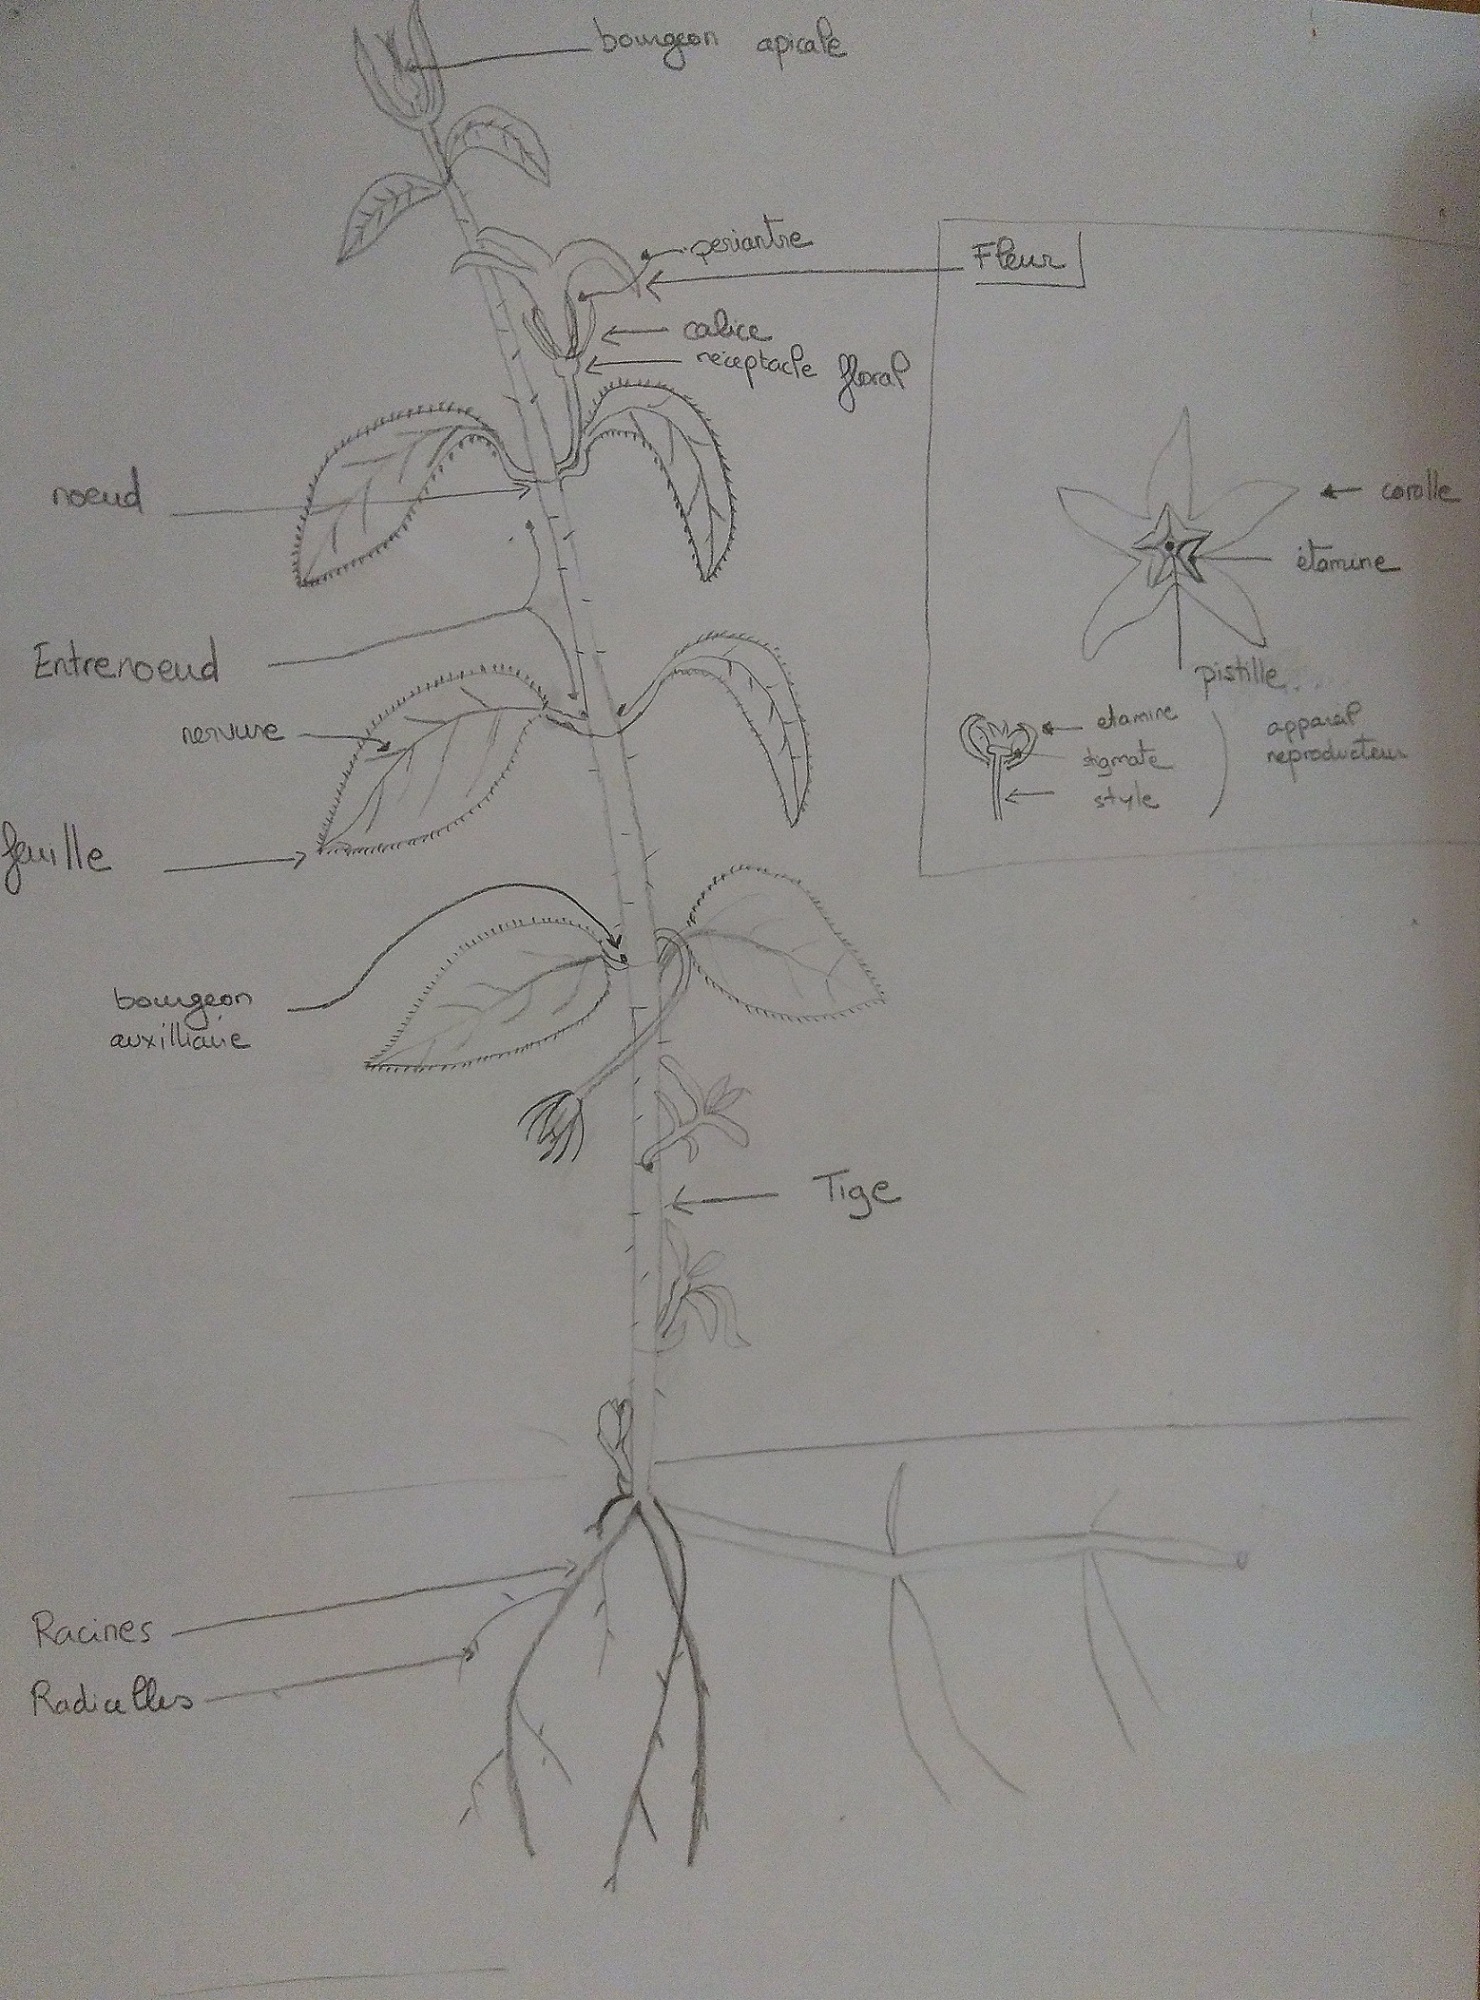 bourgeon apicale
periantre
Fleur
calice
réceptacle floral
noeud
corolle
étamine
Entrenoeud
pistille
nervure
etamine
stigmate
style
appareil
reproducteur
feuille
bourgeon
auxilliaire
Tige
Racines
Radicelles